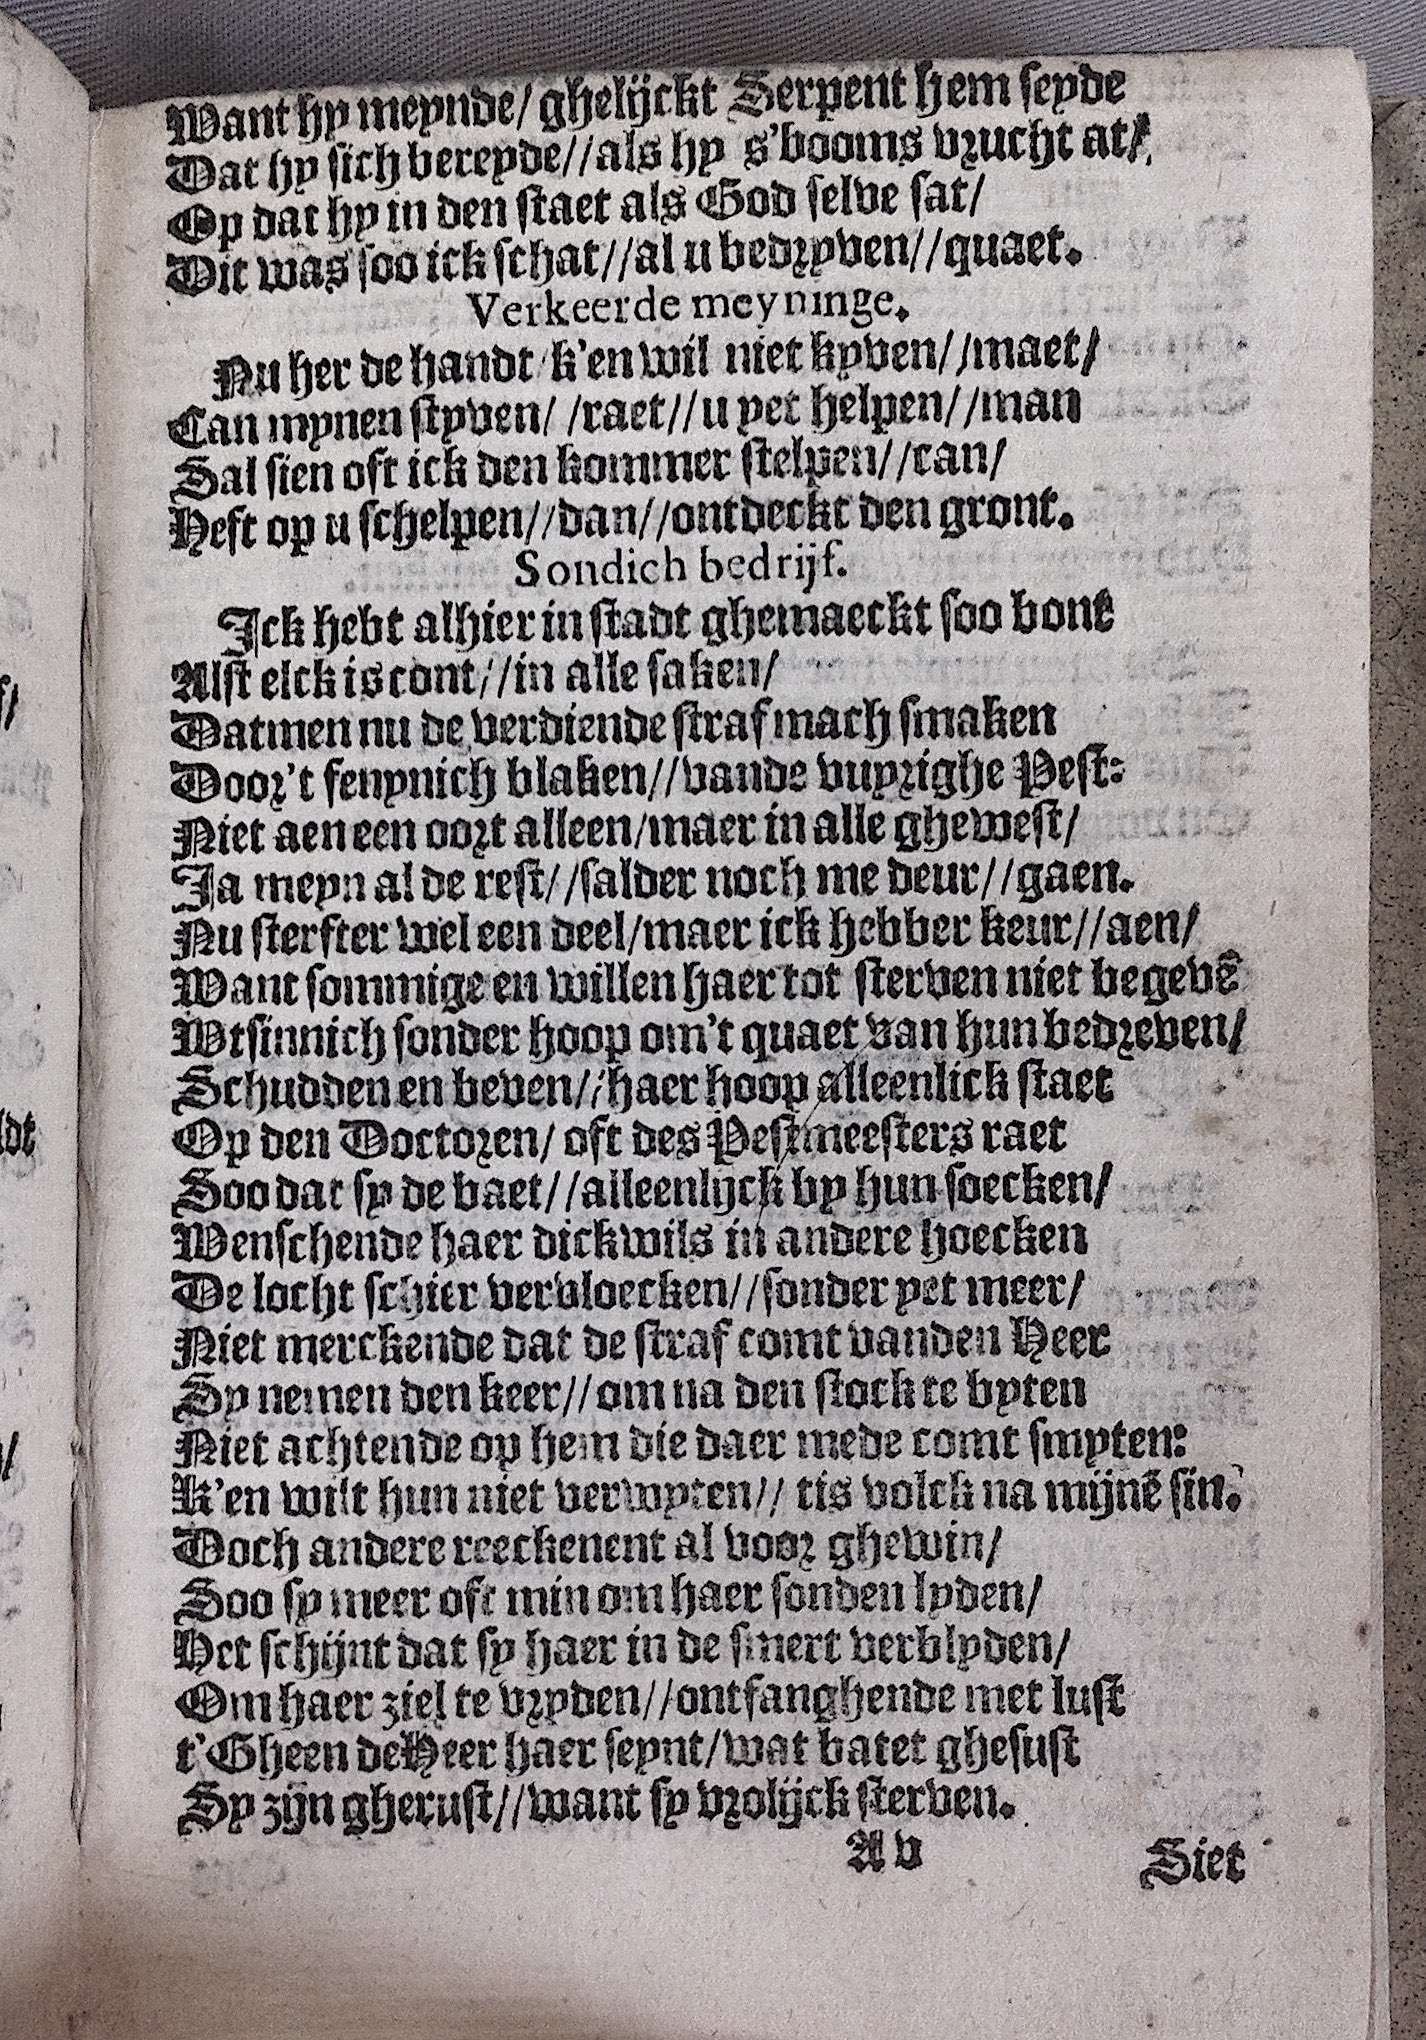 Want hy meynde/ ghelijckt Serpent hem seyde
Dat hy sich bereyde//als hy s'booms vrucht at/
Op dat hy in den staet als God selve sat/
Dit was soo ick schat//al u bedryven//quaet.
Verkeerde meyninge.
Nu her de handt/k'en wil niet kyven//maet/
Can mynen styven//raet//u yet helpen//man
Sal sien oft ick den kommer stelpen//can/
Heft op u schelpen//dan//ontdeckt den gront.
Sondich bedrijf.
Ick hebt alhier in stadt ghemaeckt soo bont
Alst elck is cont//in alle saken/
Datmen nu de verdiende straf mach smaken
Door't fenynich blaken//vande vuyrighe Pest:
Niet aen een oort alleen/maer in alle ghewest/
Ja meyn al de rest//salder noch me deur//gaen.
Nu sterfter wel een deel/maer ick hebber keur//aen/
Want sommige en willen haer tot sterven niet begevē
Wtsinnich sonder hoop om't quaet van hun bedreven/
Schudden en beven//haer hoop alleenlick staet
Op den Doctoren/ oft des Pestmeesters raet
Soo dat sy de baet//alleenlijck by hun soecken/
Wenschende haer dickwils in andere hoecken
De locht schier vervloecken//sonder yet meer/
Niet merckende dat de straf comt vanden Heer
Sy nemen den keer//om na den stock te byten
Niet achtende op hem die daer mede comt smyten:
K'en wilt hun niet verwyten// tis volck na mijnē sin.
Doch andere reeckenent al voor ghewin/
Soo sy meer oft min om haer sonden lyden/
Het schijnt dat sy haer in de smert verblyden/
Om haer ziel te vryden//ontfanghende met lust
t'Gheen de Heer haer seynt/wat batet ghesust
Sy zijn gherust//want sy vrolijck sterven.
A v
Siet